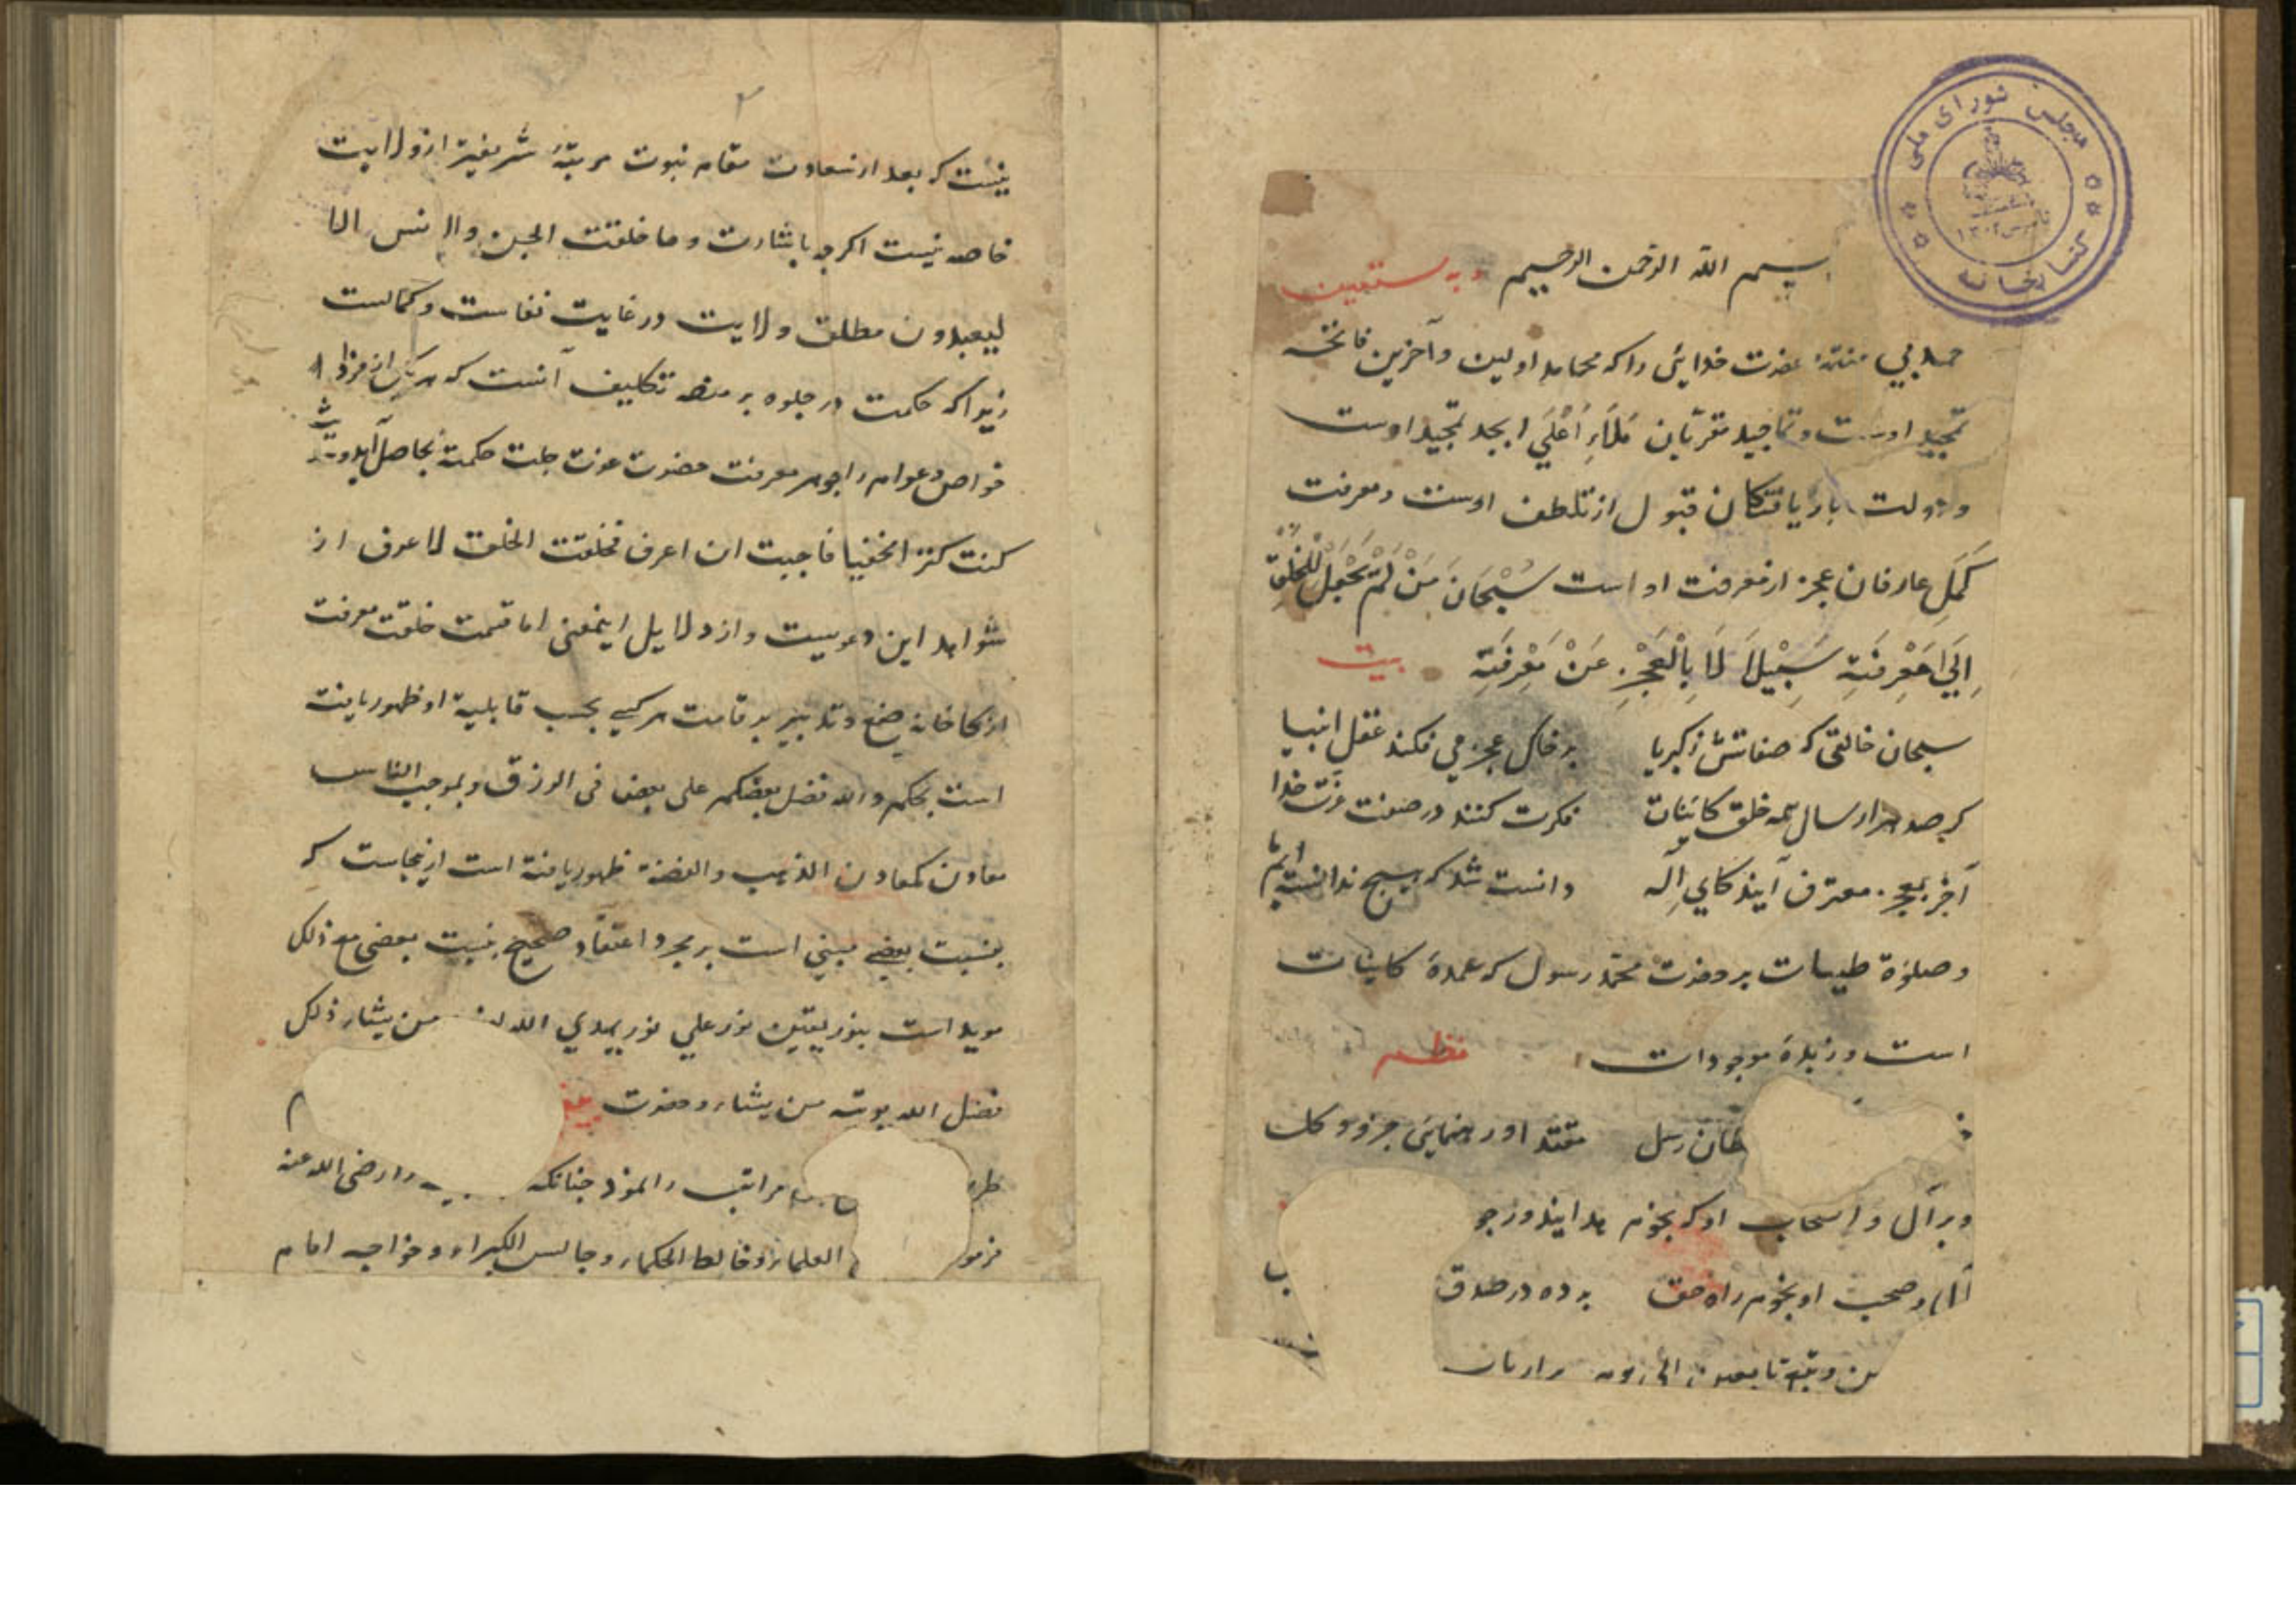 مجلس شورای ملی
کتابخانه
بسم الله الرحمن الرحیم وبه نستعین
حمد بی منتهٰی حضرت خدایی را که محامد اولین وآخرین فاتحه
تحمید اوست وتماجید مقربان مَلَاءِ اَعْلَي ابجد تمجید اوست
ودولت باریافتکان قبول از تلطف اوست ومعرفت
کُمَّلِ عارفان عجز از معرفت او است سُبْحَانَ مَنْ لَمْ یَجْعَل لِلْخَلْقِ
اِلَي مَعْرِفَتِه سَبِیْلاً اِلَّا بِالْعَجْزِ عَنْ مَعْرِفَتِه بیت
سبحان خالقی که صفاتش زکبریا بر خاک عجز می فکند عقل انبیا
کر صد هزار سال همه خلق کاینات فکرت کنند در صفت عزت خدا
آخر بعجز معترف آیند کای اِله دانسته شد که هیچ ندانسته ایم ما
وصلوة طیبات بر حضرت محمد رسول که عمدهٔ کاینات
است وزبدهٔ موجودات نظم
طان رسل مقتدا ورهنمای جزو وکل
وبر آل واصحاب او که نجوم هدایند ورجو
آل وصحب او نجوم راه حق برده در صدق
ن وتبع تابعین الی یوم
نیست که بعد از سعادت مقام نبوت مرتبهٔ شریفتر از ولایت
خاصه نیست اکرچه باشارت وما خلقت الجن والانس الا
لیعبدون مطلق ولایت در غایت نفاست وکمالست
زیرا که حکمت در جلوه بر منصه تکلیف آنست که هریک از افراد
خواص وعوام را جوهر معرفت حضرت عزت جلت حکمته بحاصل آید وحدیث
کنت کنزا مخفیا فاحببت ان اعرف فخلقت الخلق لاعرف از
شواهد این دعویست واز دلایل اینمعنی اما قسمت خلعت معرفت
از کارخانه صنع وتدبیر بر قامت هر کسی بحسب قابلیة او ظهور یافته
است بحکم والله فضل بعضکم علی بعض فی الرزق وبموجب الناس
معادن کمعادن الذهب والفضة ظهور یافته است ازینجاست که
بنسبت بعضی مبنی است بر مجرد اعتقاد صحیح بنسبت بعضی مع ذلک
موید است بنور یقین نور علی نور یهدي الله من یشاء ذلک
فضل الله یوتیه من یشاء وحضرت
مراتب را نموذ چنانکه را رضی الله عنه
فرمو العلماء وخالط الحکماء وجالس الکبراء وخواجه امام